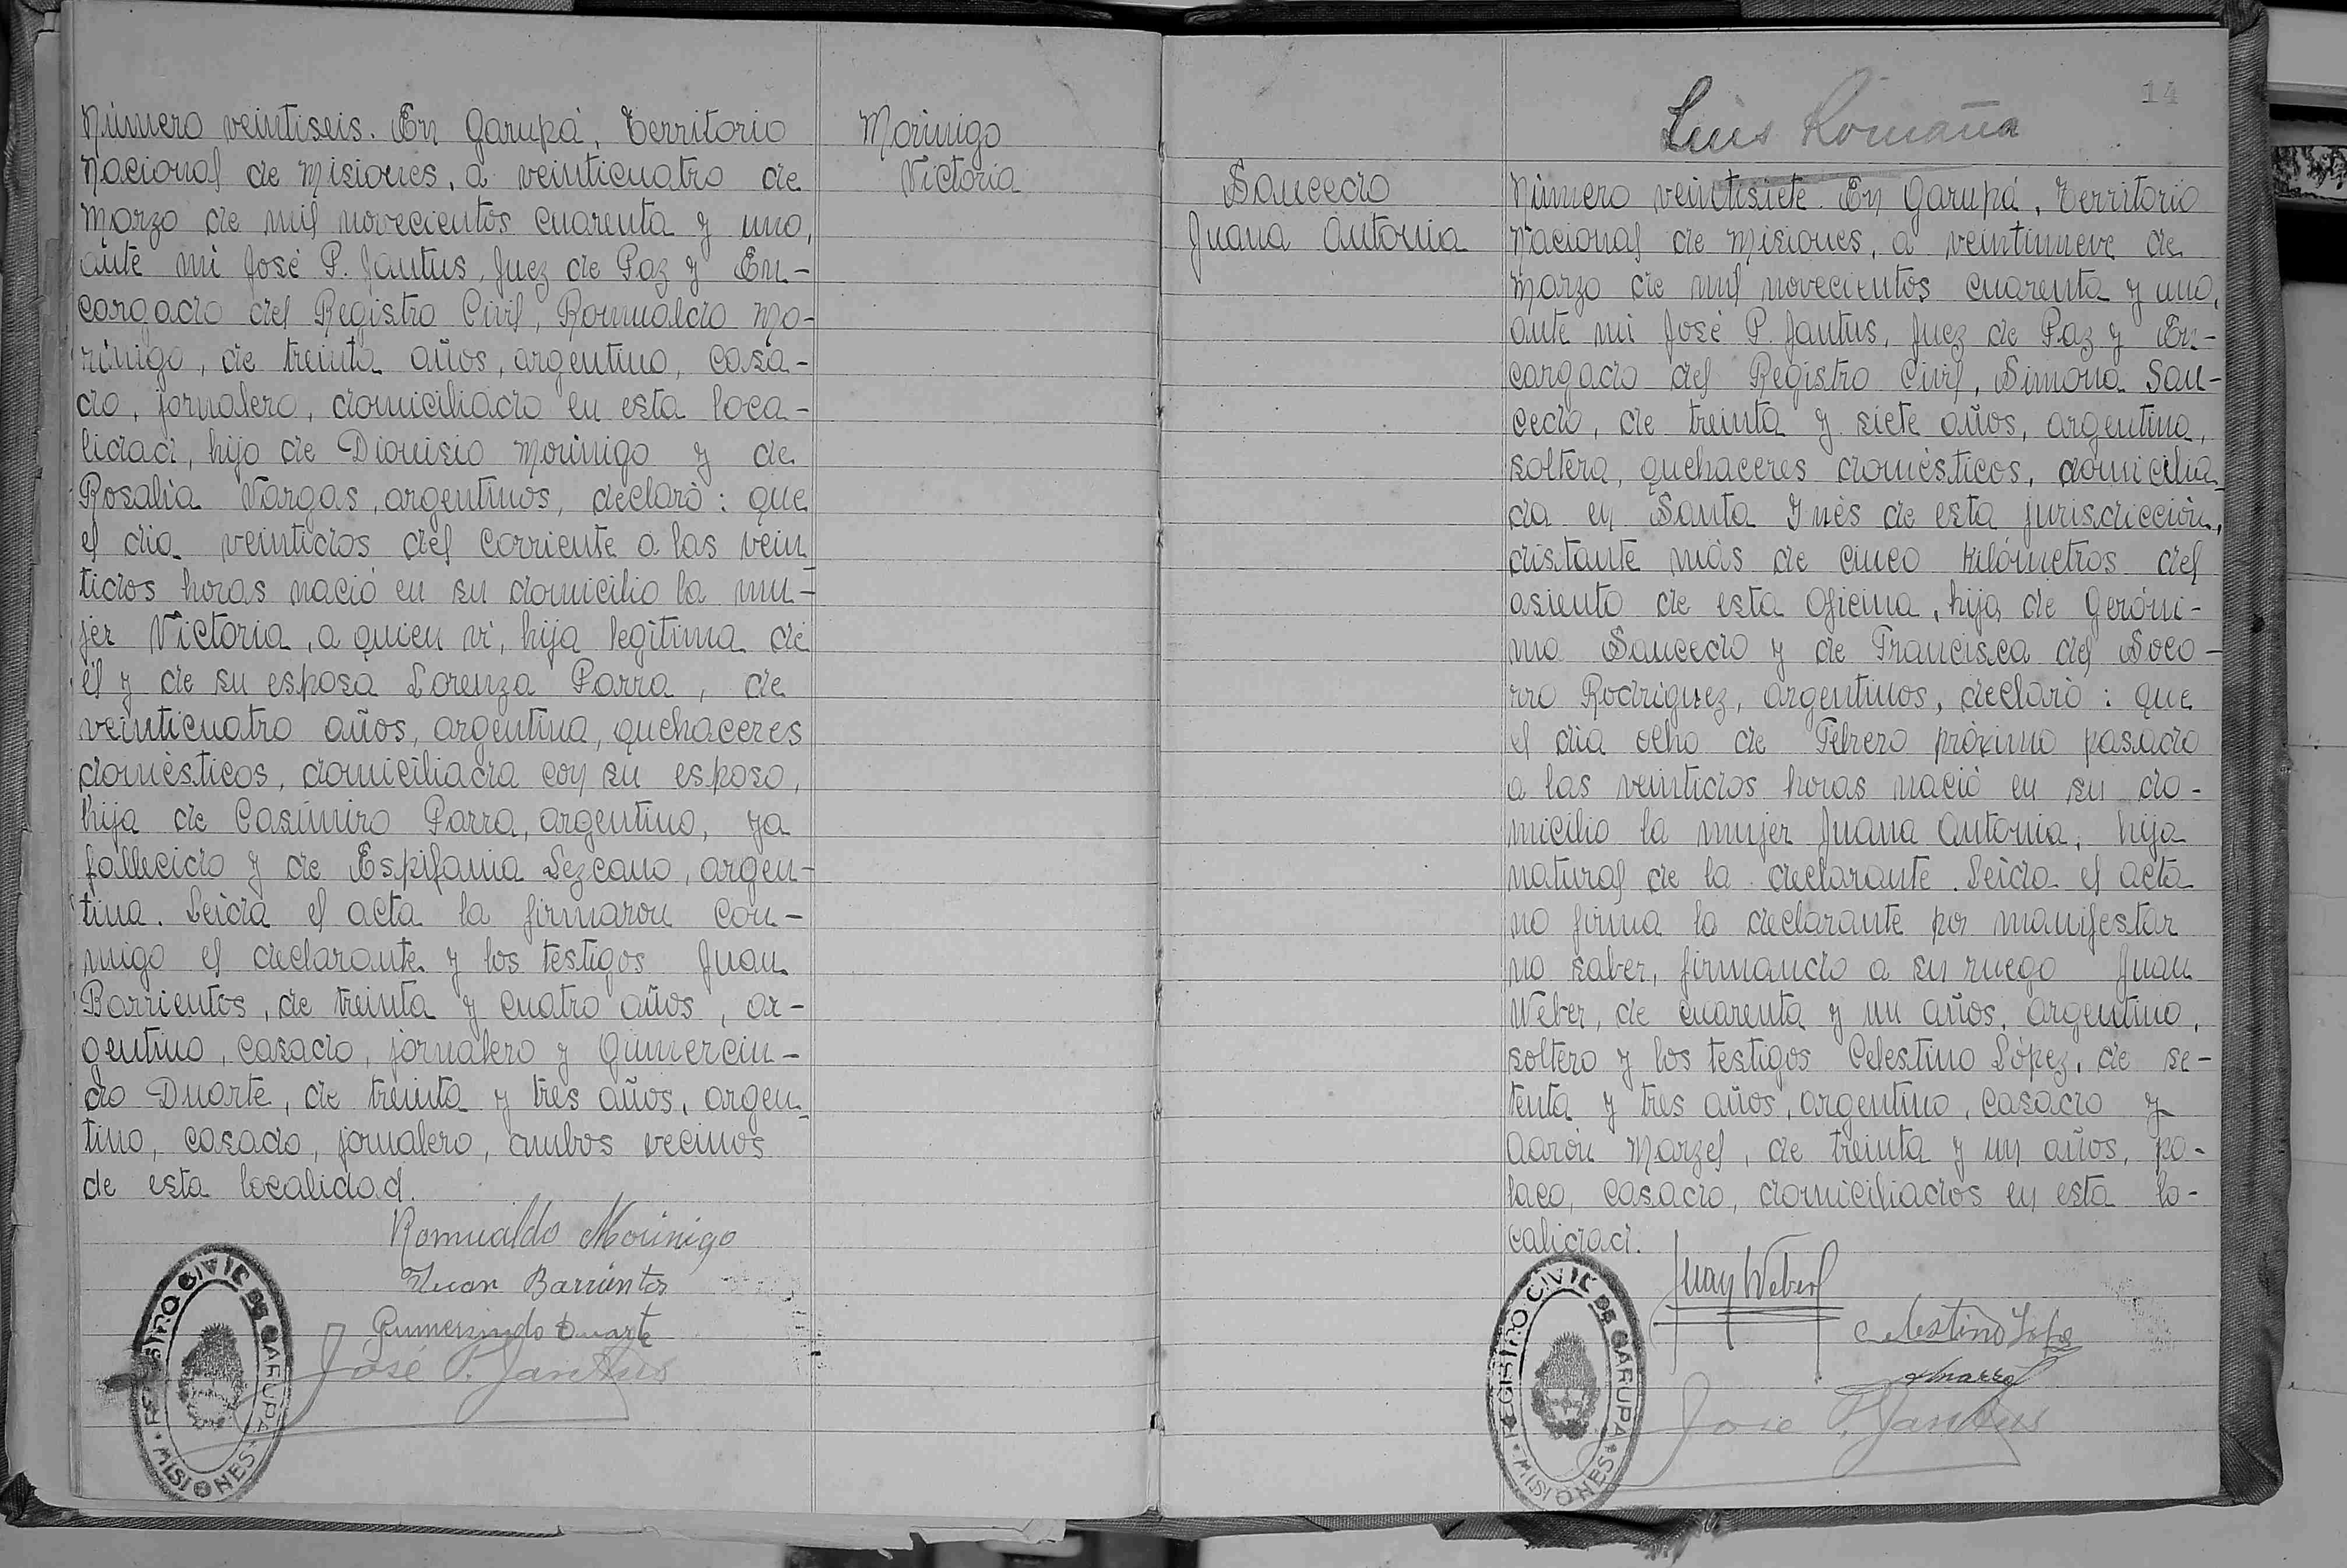 Número veintiseis. En Garupá, Territorio
Nacional de Misiones, a veinticuatro de
Marzo de mil novecientos cuarenta y uno,
ante mi José P. Jantus, Juez de Paz y En-
cargado del Registro Civil, Romualdo Mo-
rinigo, de treinta años, argentino, casa-
do, jornalero, domiciliado en esta loca-
lidad, hijo de Dionisio Morinigo y de
Rosalía Vargas, argentinos, declaró: que
el dia veintidos del corriente a las vein
tidos horas nació en su domicilio la mu-
jer Victoria, a quien ví, hija legítima de
él y de su esposa Lorenza Parra, de
veinticuatro años, argentina, quehaceres
domésticos, domiciliada con su esposo,
hija de Casímiro Parra, argentino, ya
fallecido y de Espifania Lezcano, argen-
tina. Leida el acta la firmaron con-
migo el declarante y los testigos Juan
Barrientos, de treinta y cuatro años, ar-
gentino, casado, jornalero y Gumercin-
do Duarte, de treinta y tres años, argen
tino, casado, jornalero, ambos vecinos
de esta localidad.
Romualdo Morinigo
Juan Barrientos
Gumersindo Duarte
José P. Jantus
REGISTRO CIVIL DE GARUPA
MISIONES
Morinigo
Victoria
14
Luis Romaña
Saucedo
Juana Antonia
Número veintisiete. En Garupá, Territorio
Nacional de Misiones, a veintinueve de
Marzo de mil novecientos cuarenta y uno,
ante mi José P. Jantus, Juez de Paz y En-
cargado del Registro Civil, Simona Sau-
cedo, de treinta y siete años, argentina,
soltera, quehaceres domésticos, domicilia
da en Santa Inés de esta jurisdicción,
distante más de cinco kilómetros del
asiento de esta Oficina, hija de Geróni-
mo Saucedo y de Francisca del Soco-
rro Rodriguez, argentinos, declaró: que
el dia ocho de Febrero próximo pasado
a las veintidos horas nació en su do-
micilio la mujer Juana Antonia, hija
natural de la declarante. Leida el acta
no firma la declarante por manifestar
no saber, firmando a su ruego Juan
Weber, de cuarenta y un años, argentino,
soltero y los testigos Celestino López, de se-
tenta y tres años, argentino, casado y
Aarón Marzel, de treinta y un años, po-
laco, casado, domiciliados en esta lo-
calidad.
Juan Weber
Celestino Lopez
José P. Jantus
REGISTRO CIVIL DE GARUPA
MISIONES